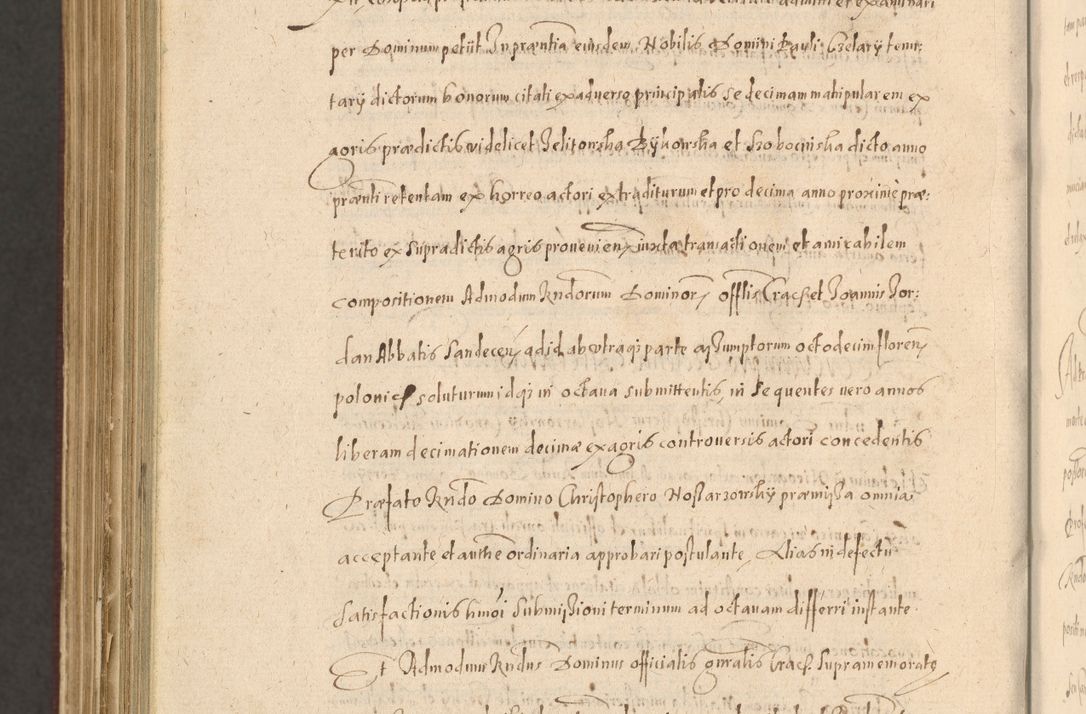 per Dominum petiit In præntia eiusdem Nobilis Domini Pauli Czelary tenu:
tarÿ dictorum bonorum citati ex adverso principalis se decimam manipularem ex
agris prædictis videlicet Jelitowska Bykowska et Szobocinska dicto anno
prænti retentam ex horreo actori extraditurum et pro decima anno proxime præ:
terito ex supradictis agris provenien iuxta transactionem et amicabilem
compositionem Admodum Rndorum Dominor offlis Crac et Joannis Jor:
dan Abbatis Sandecen ad id ab utraq parte assumptorum octodecim floren
polonic soluturum idq in octava submittentis, in sequentes vero annos
liberam decimationem decimæ ex agris controversis actori concedentis
Præfato Rndo Domino Christophero Nosarzowskÿ præmissa omnia
acceptante et authe ordinaria approbari postulante, Alias in defectu
satisfactionis hmoi submissioni terminum ad octavam differri instante.
Et Admodum Rndus Dominus officialis gnralis Crac supramemorat